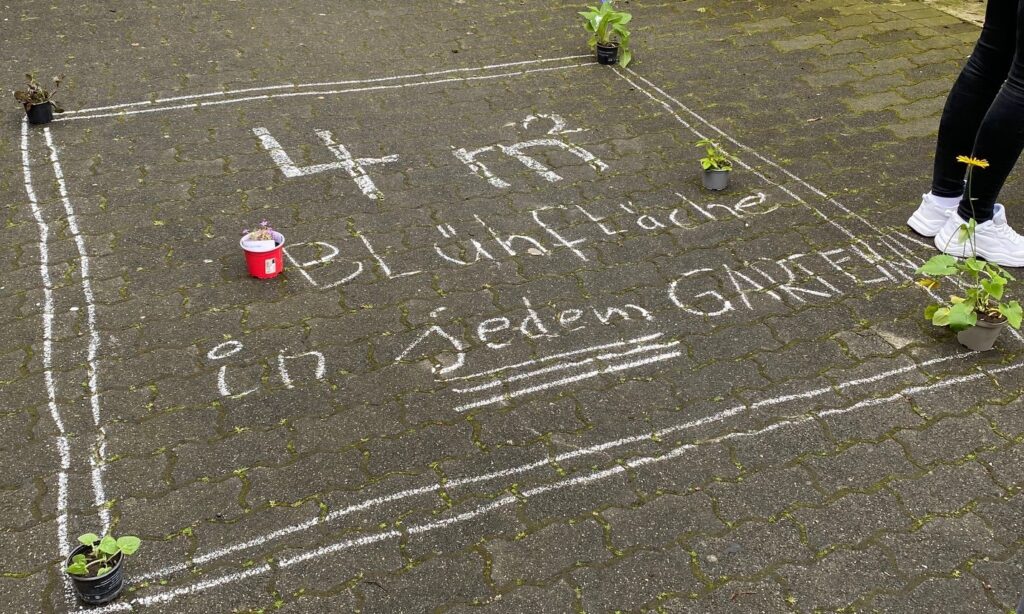 4 m²
BLühFLäche
in jedem GARTEN